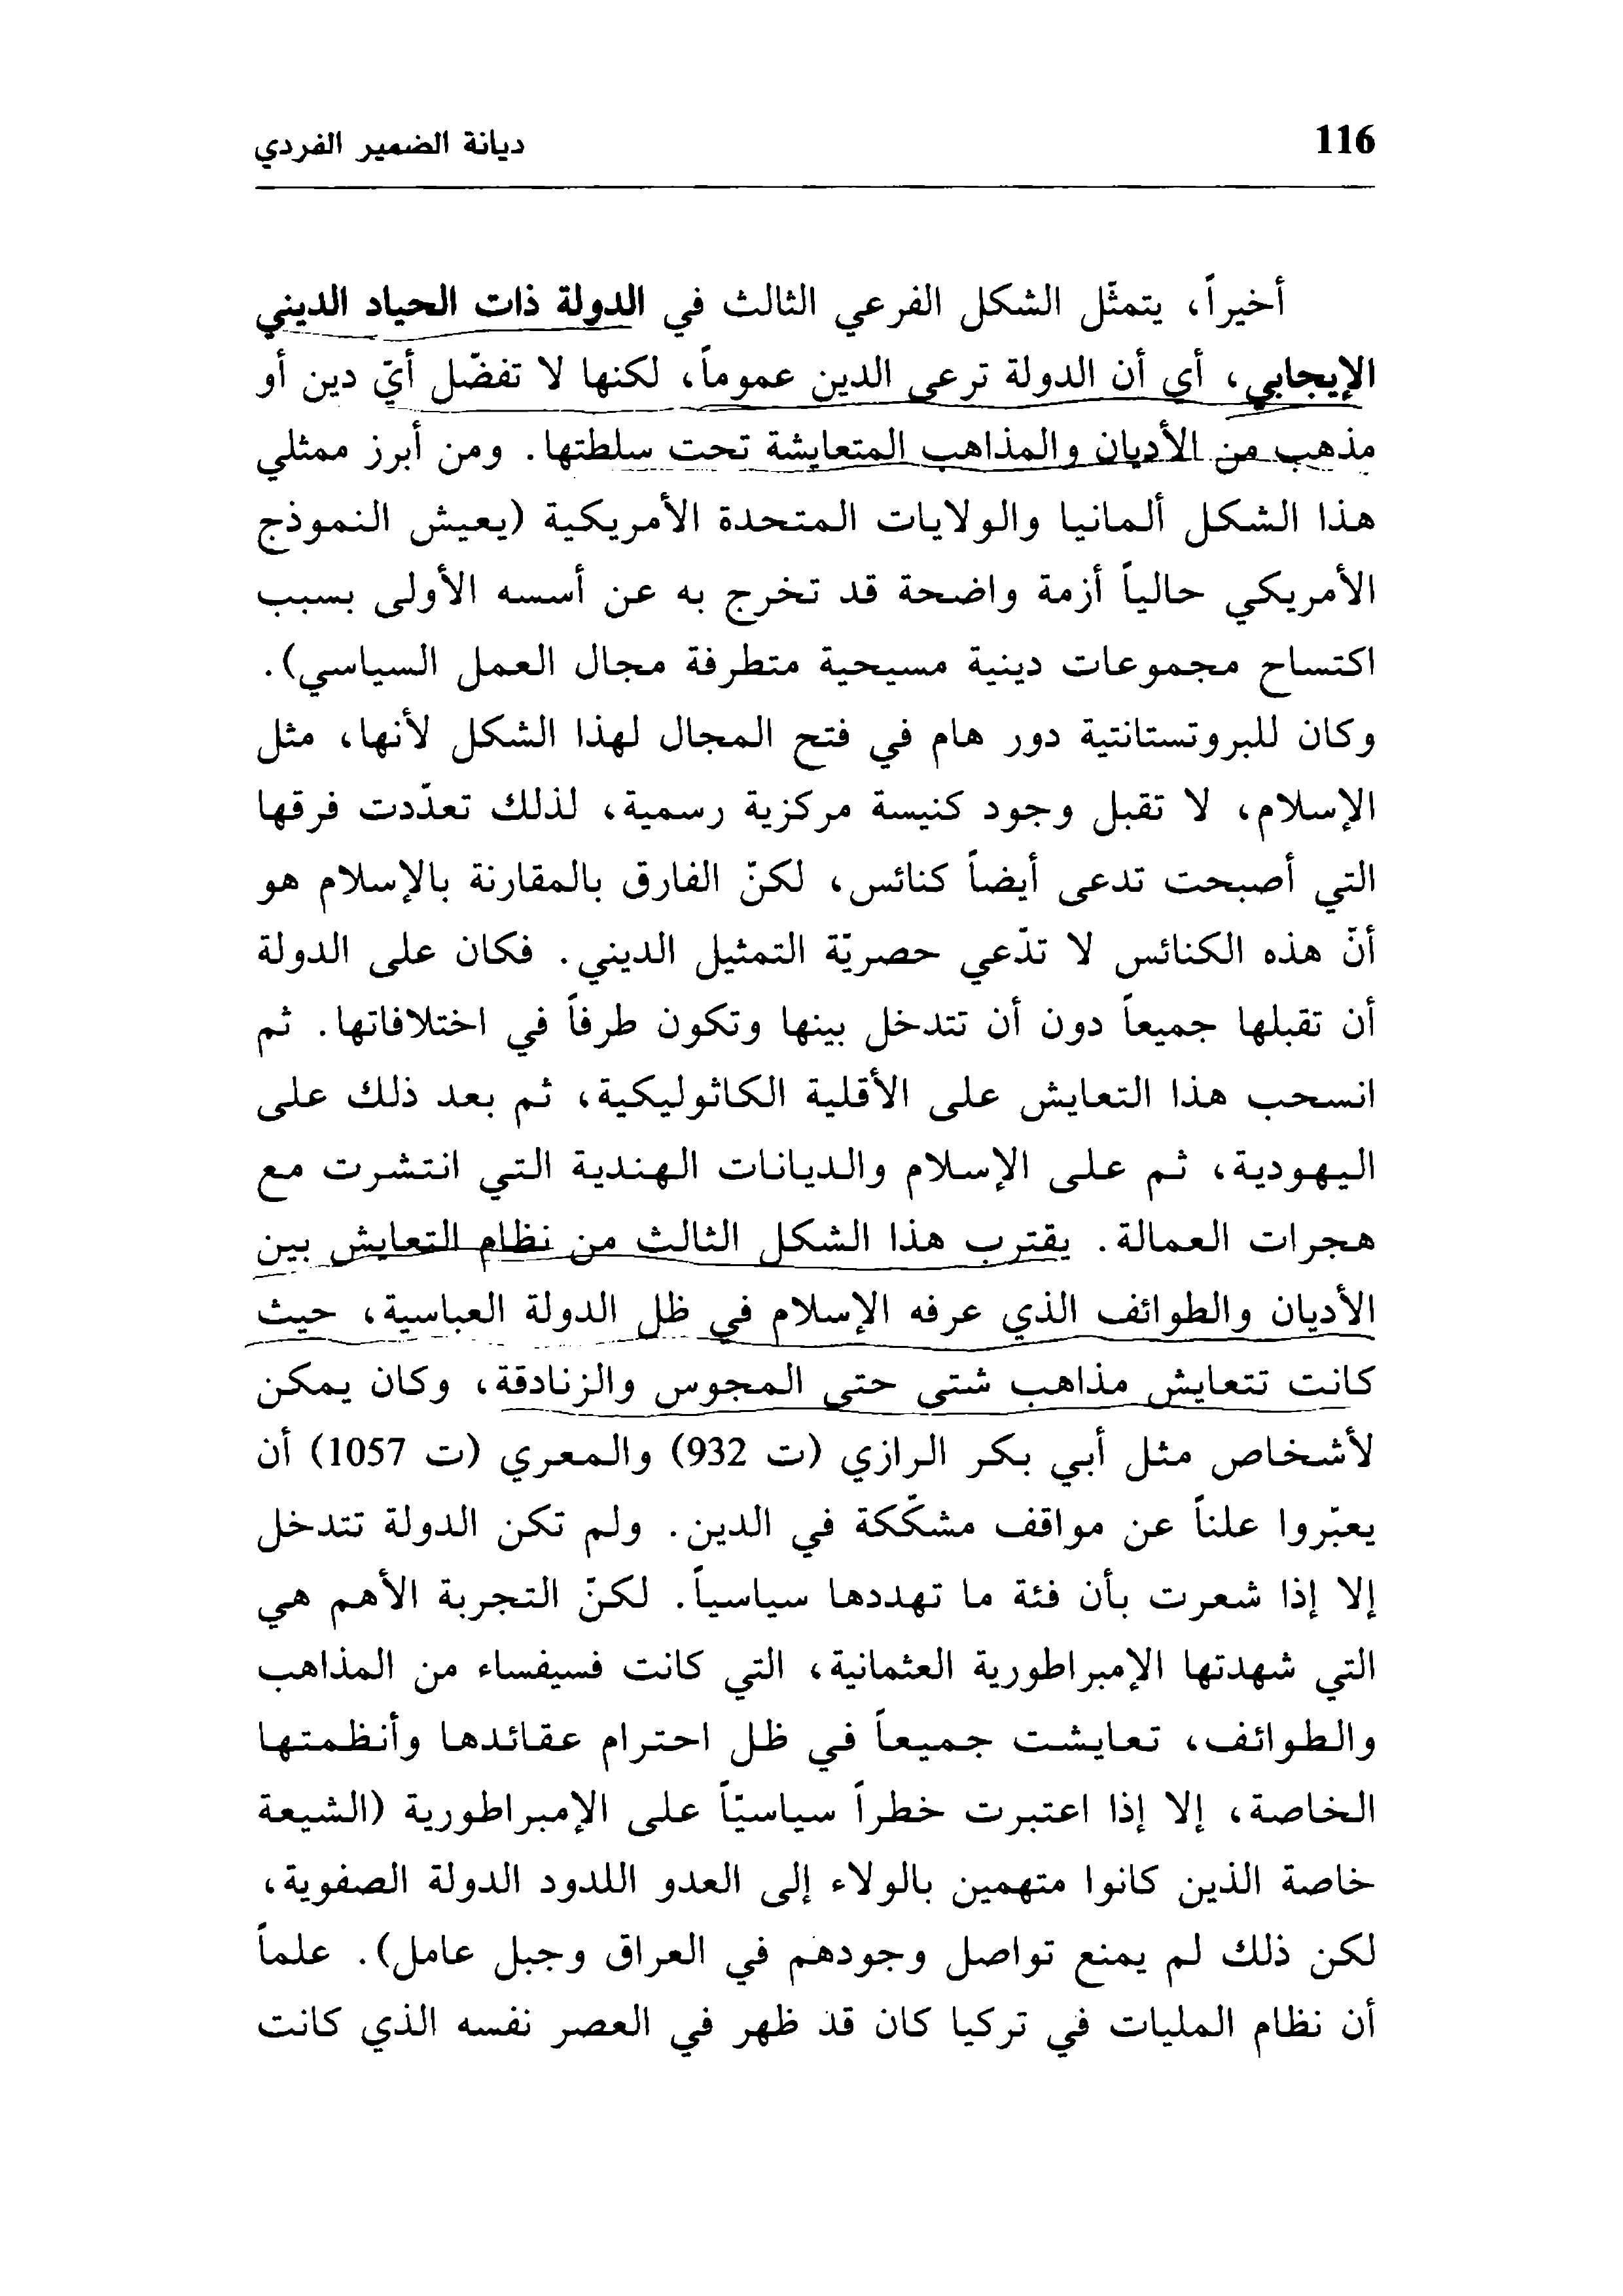 116
ديانة الضمير الفردي
أخيراً، يتمثّل الشكل الفرعي الثالث في الدولة ذات الحياد الديني
الإيجابي، أي أن الدولة ترعى الدين عموماً، لكنها لا تفضّل أيّ دين أو
مذهب من الأديان والمذاهب المتعايشة تحت سلطتها. ومن أبرز ممثلي
هذا الشكل ألمانيا والولايات المتحدة الأمريكية (يعيش النموذج
الأمريكي حالياً أزمة واضحة قد تخرج به عن أسسه الأولى بسبب
اكتساح مجموعات دينية مسيحية متطرفة مجال العمل السياسي).
وكان للبروتستانتية دور هام في فتح المجال لهذا الشكل لأنها، مثل
الإسلام، لا تقبل وجود كنيسة مركزية رسمية، لذلك تعدّدت فرقها
التي أصبحت تدعى أيضاً كنائس، لكنّ الفارق بالمقارنة بالإسلام هو
أنّ هذه الكنائس لا تدّعي حصريّة التمثيل الديني. فكان على الدولة
أن تقبلها جميعاً دون أن تتدخل بينها وتكون طرفاً في اختلافاتها. ثم
انسحب هذا التعايش على الأقلية الكاثوليكية، ثم بعد ذلك على
اليهودية، ثم على الإسلام والديانات الهندية التي انتشرت مع
هجرات العمالة. يقترب هذا الشكل الثالث من نظام التعايش بين
الأديان والطوائف الذي عرفه الإسلام في ظل الدولة العباسية، حيث
كانت تتعايش مذاهب شتى حتى المجوس والزنادقة، وكان يمكن
لأشخاص مثل أبي بكر الرازي (ت 932) والمعري (ت 1057) أن
يعبّروا علناً عن مواقف مشكّكة في الدين. ولم تكن الدولة تتدخل
إلا إذا شعرت بأن فئة ما تهددها سياسياً. لكنّ التجربة الأهم هي
التي شهدتها الإمبراطورية العثمانية، التي كانت فسيفساء من المذاهب
والطوائف، تعايشت جميعاً في ظل احترام عقائدها وأنظمتها
الخاصة، إلا إذا اعتبرت خطراً سياسيّاً على الإمبراطورية (الشيعة
خاصة الذين كانوا متهمين بالولاء إلى العدو اللدود الدولة الصفوية،
لكن ذلك لم يمنع تواصل وجودهم في العراق وجبل عامل). علماً
أن نظام المليات في تركيا كان قد ظهر في العصر نفسه الذي كانت